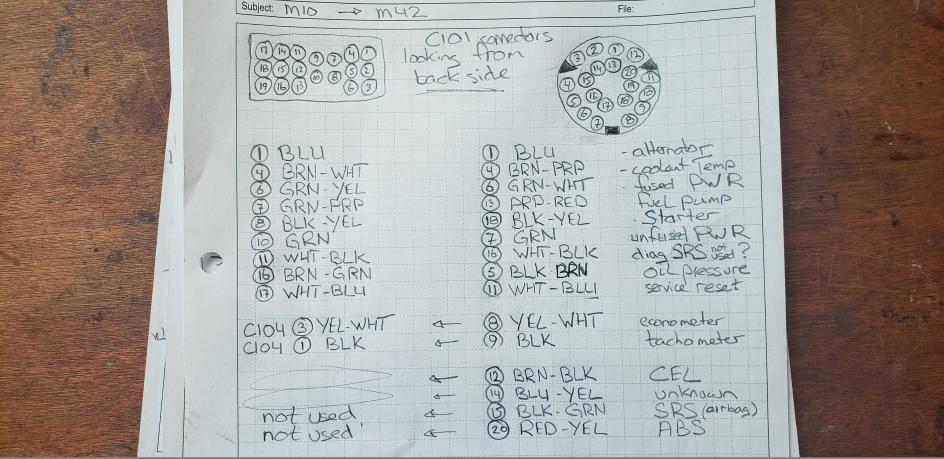 Subject: M10 → M42 File:
C101 connectors
looking from
back side
17 14 11 9 7 4 1
18 15 12 10 8 5 2
19 16 13 6 3
3 2 1 12
14 13 20 11
4 15 19 10
5 16 17 18 9
6 7 8
① BLU ① BLU - alternator
④ BRN-WHT ④ BRN-PRP - coolant Temp
⑥ GRN-YEL ⑥ GRN-WHT - fused PWR
⑦ GRN-PRP ⑬ PRP-RED fuel pump
⑧ BLK-YEL ⑱ BLK-YEL - Starter
⑩ GRN ⑦ GRN unfused PWR
⑪ WHT-BLK ⑯ WHT-BLK diag SRS not used?
⑯ BRN-GRN ⑤ BLK BRN OIL pressure
⑰ WHT-BLU ⑪ WHT-BLU service reset
C104 ③ YEL-WHT ← ⑧ YEL-WHT econometer
C104 ① BLK ← ⑨ BLK tachometer
← ⑫ BRN-BLK CEL
← ⑭ BLU-YEL unknown
not used ← ⑮ BLK-GRN SRS (airbag)
not used ← ⑳ RED-YEL ABS